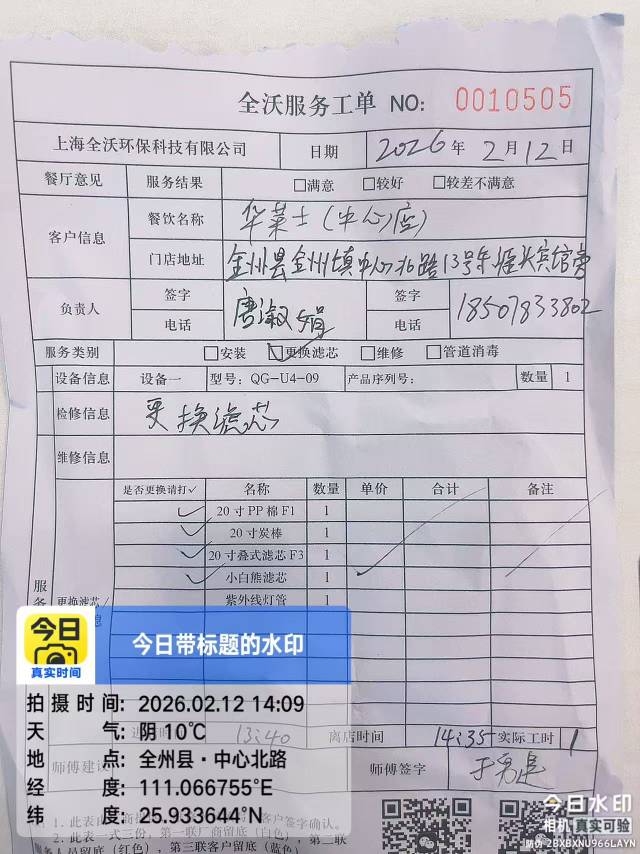 全沃服务工单 NO: 0010505
上海全沃环保科技有限公司 日期 2026年2月12日
餐厅意见 服务结果 □满意 □较好 □较差不满意
客户信息 餐饮名称 华莱士(中心店)
门店地址 全州县全州镇中心北路13号
负责人 签字 唐淑娟 签字
电话 电话 18507833802
服务类别 □安装 ☑更换滤芯 □维修 □管道消毒
设备信息 设备一 型号:QG-U4-09 产品序列号: 数量 1
检修信息 更换滤芯
维修信息
是否更换请打✓ 名称 数量 单价 合计 备注
✓ 20寸PP棉F1 1
✓ 20寸炭棒 1
✓ 20寸叠式滤芯F3 1
✓ 小白熊滤芯 1
紫外线灯管 1
服
更换滤芯/
今日
真实时间
今日带标题的水印
拍摄时间: 2026.02.12 14:09
天气: 阴 10℃
地点: 全州县·中心北路
经度: 111.066755°E
纬度: 25.933644°N
13:40 离店时间 14:35 实际工时 1
师傅建议 师傅签字
客户签字确认。
2. 此表一式三份,第一联厂商留底(白色),第二联
服务人员留底(红色),第三联客户留底(蓝色)
今日水印
相机 真实可验
防伪 2BXBXNU966LAYN